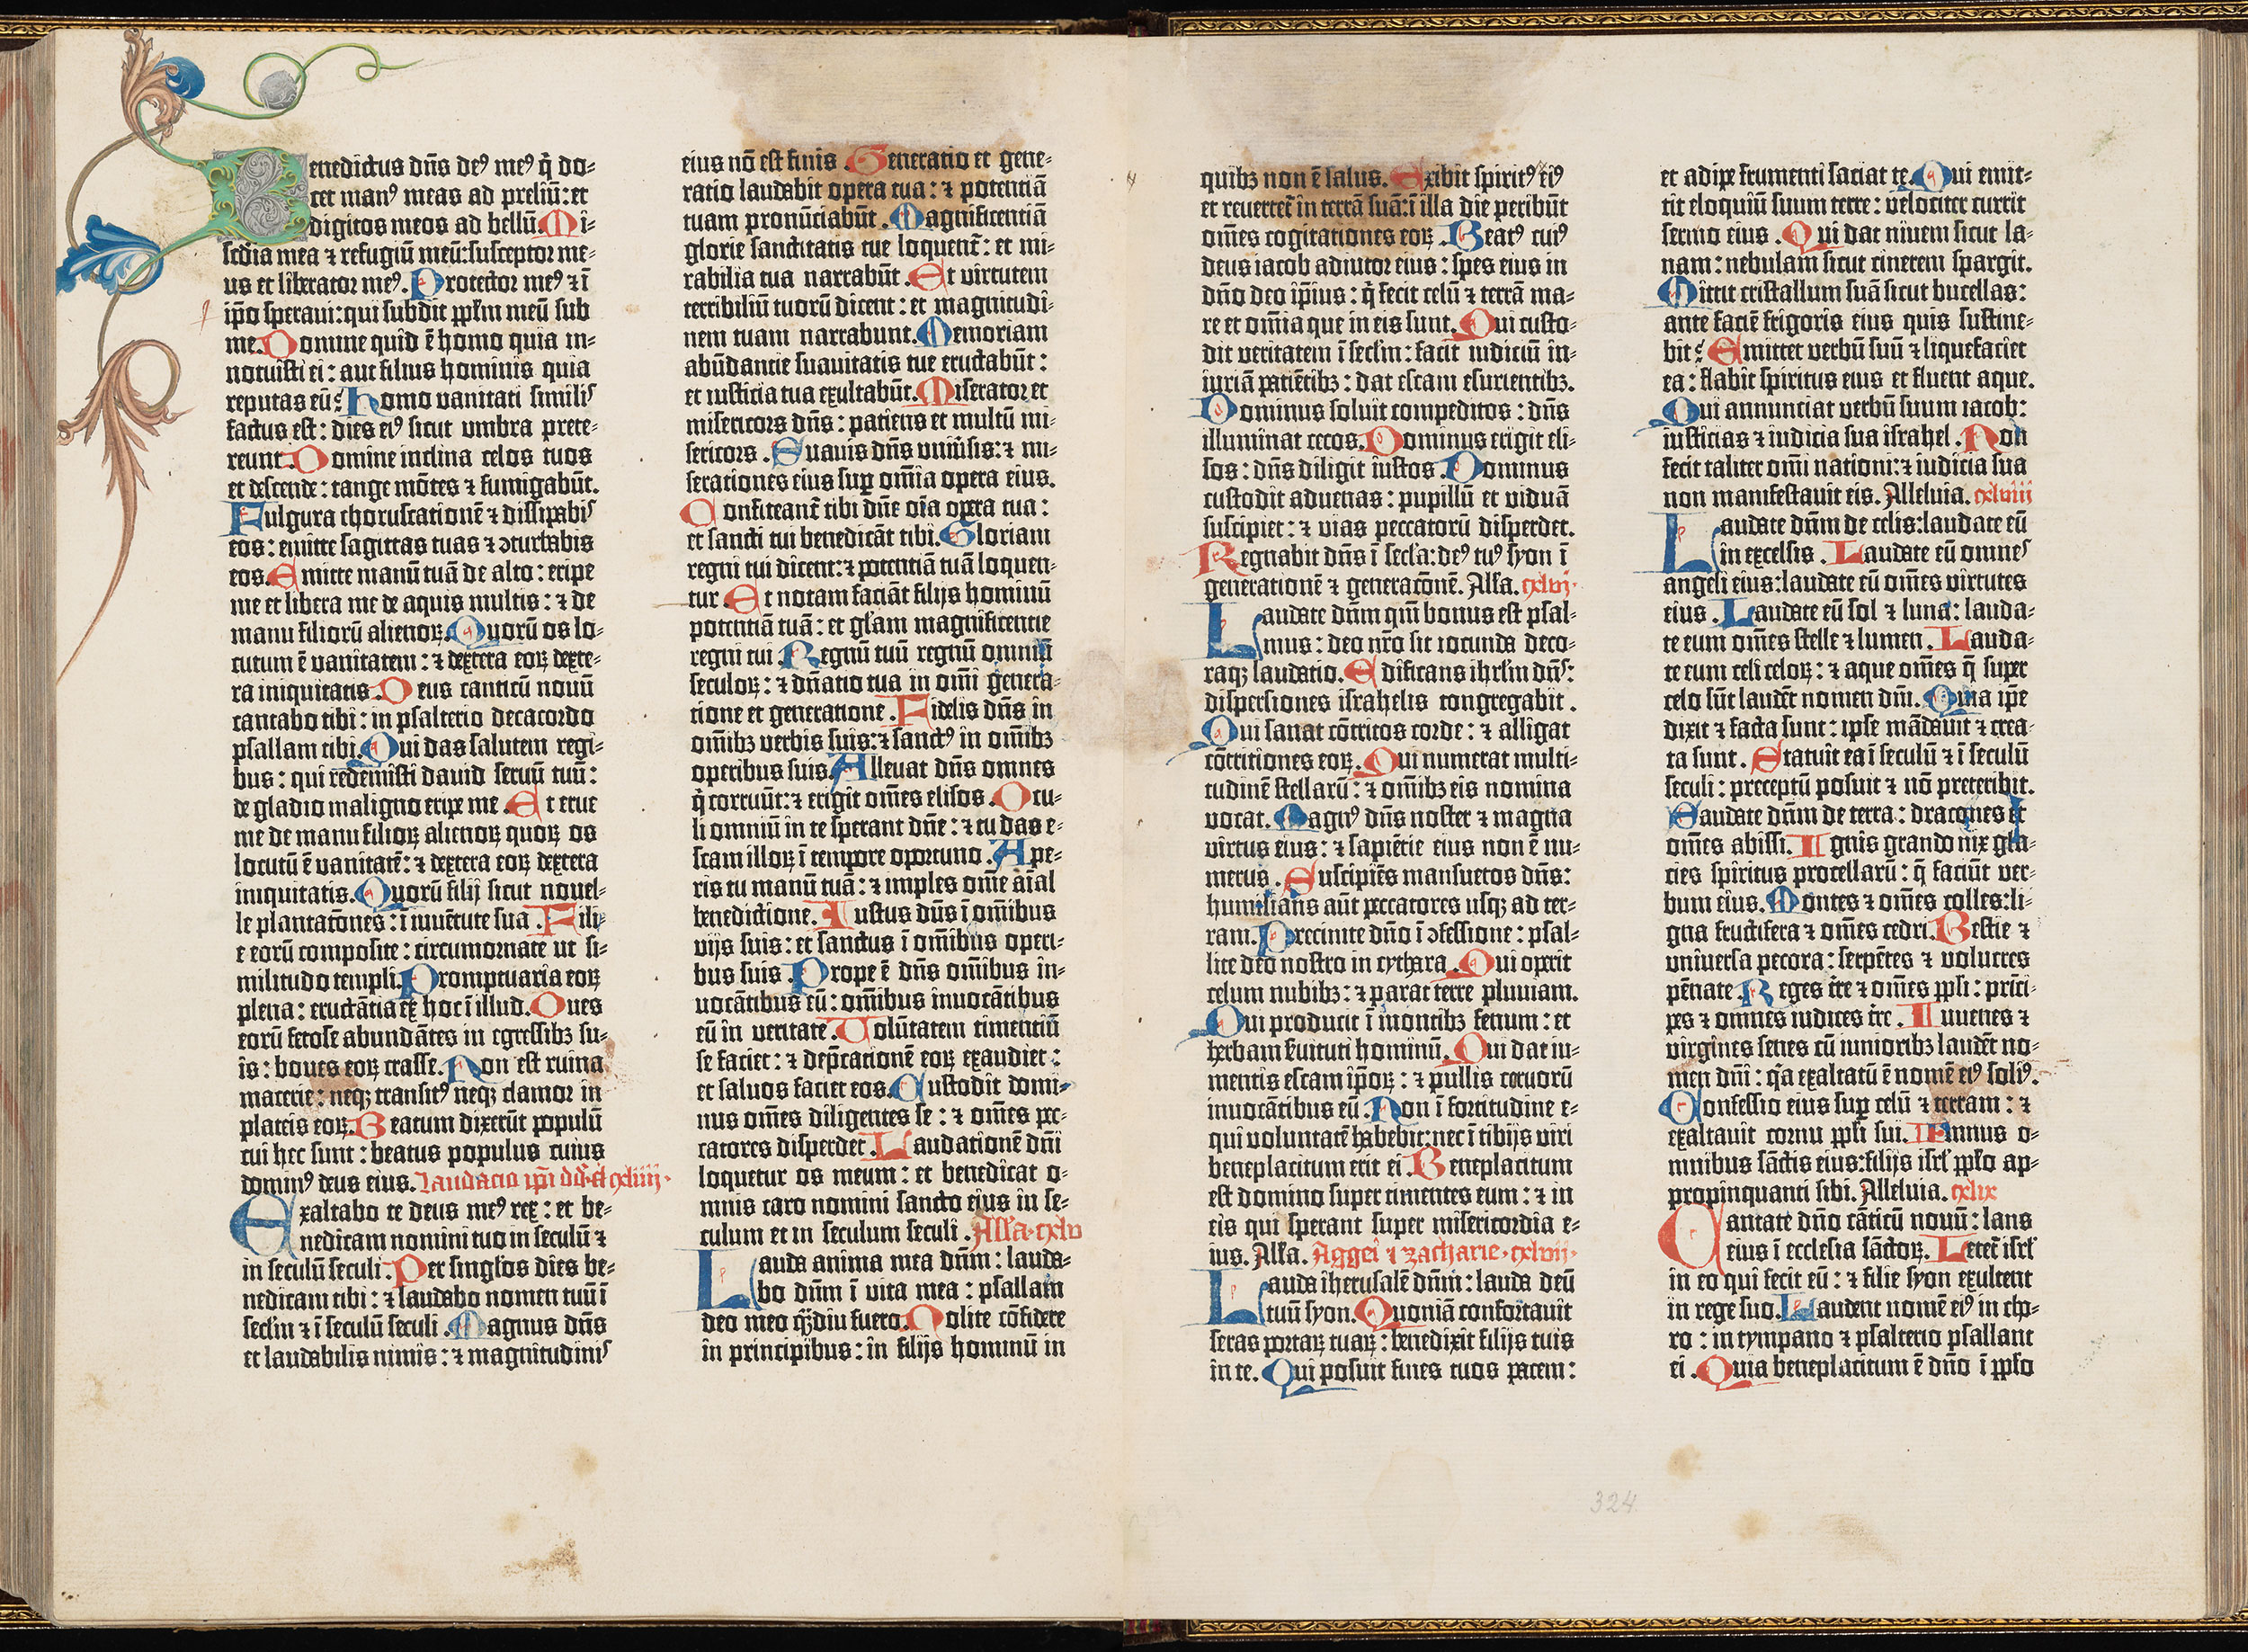 Benedictus dn̄s deꝰ meꝰ q̄ do-
cet manꝰ meas ad preliū: et
digitos meos ad bellū. Mi-
sc̄dia mea ⁊ refugiū meū: susceptor me-
us et liberator meꝰ. Protector meꝰ ⁊ ī
ip̄o speraui: qui subdit pp̄lm meū sub
me. Domine quid ē homo quia in-
notuisti ei: aut filius hominis quia
reputas eū? Homo vanitati similis
factus est: dies eiꝰ sicut umbra prete-
reunt. Domine inclina celos tuos
et descende: tange mōtes ⁊ fumigabūt.
Fulgura choruscationē ⁊ dissipabis
eos: emitte sagittas tuas ⁊ ꝯturbabis
eos. Emitte manū tuā de alto: eripe
me et libera me de aquis multis: ⁊ de
manu filiorū alienoꝝ. Quorū os lo-
cutum ē vanitatem: ⁊ dextera eoꝝ dexte-
ra iniquitatis. Deus canticū nouū
cantabo tibi: in psalterio decacordo
psallam tibi. Qui das salutem regi-
bus: qui redemisti dauid seruū tuū:
de gladio maligno eripe me. Et erue
me de manu filioꝝ alienoꝝ quoꝝ os
locutū ē vanitatē: ⁊ dextera eoꝝ dextera
iniquitatis. Quorū filij sicut nouel-
le plantatōnes: ī iuuētute sua. Fili-
e eorū composite: circumornate ut si-
militudo templi. Promptuaria eoꝝ
plena: eructātia ex hoc ī illud. Oues
eorū fetose abundātes in egressibꝫ su-
is: boues eoꝝ crasse. Non est ruina
macerie: neqꝫ transitꝰ neqꝫ clamor in
plateis eoꝝ. Beatum dixerūt populū
cui hec sunt: beatus populus cuius
dominꝰ deus eius. Laudacio ip̄i dd̄ cxliiij.
Exaltabo te deus meꝰ rex: et be-
nedicam nomini tuo in seculū ⁊
in seculū seculi. Per singl̄os dies be-
nedicam tibi: ⁊ laudabo nomen tuū ī
secl̄m ⁊ ī seculū seculi. Magnus dn̄s
et laudabilis nimis: ⁊ magnitudinis
eius nō est finis. Generatio et gene-
ratio laudabit opera tua: ⁊ potentiā
tuam pronūciabūt. Magnificentiā
glorie sanctitatis tue loquent̄: et mi-
rabilia tua narrabūt. Et virtutem
terribiliū tuorū dicent: et magnitudi-
nem tuam narrabunt. Memoriam
abūdantie suauitatis tue eructabūt:
et iusticia tua exultabūt. Miserator et
misericors dn̄s: patiens et multū mi-
sericors. Suauis dn̄s uniūsis: ⁊ mi-
serationes eius sup om̄ia opera eius.
Confiteant̄ tibi dn̄e oīa opera tua:
et sancti tui benedicāt tibi. Gloriam
regni tui dicent: ⁊ potentiā tuā loquen-
tur. Et notam faciāt filijs hominū
potentiā tuā: et gl̄am magnificentie
regni tui. Regnū tuū regnū omniū
seculoꝝ: ⁊ dn̄atio tua in om̄i genera-
tione et generatione. Fidelis dn̄s in
om̄ibꝫ verbis suis: ⁊ sanctꝰ in om̄ibꝫ
operibus suis. Alleuat dn̄s omnes
q̄ corruūt: ⁊ erigit om̄es elisos. Ocu-
li omniū in te sperant dn̄e: ⁊ tu das e-
scam illoꝝ ī tempore oportuno. Ape-
ris tu manū tuā: ⁊ imples om̄e aīal
benedictione. Iustus dn̄s ī om̄ibus
vijs suis: et sanctus ī om̄ibus operi-
bus suis. Prope ē dn̄s om̄ibus in-
uocātibus eū: om̄ibus inuocātibus
eū in veritate. Volūtatem timentiū
se faciet: ⁊ dep̄cationē eoꝝ exaudiet:
et saluos faciet eos. Custodit domi-
nus om̄es diligentes se: ⁊ om̄es pec-
catores disperdet. Laudationē dn̄i
loquetur os meum: et benedicat o-
mnis caro nomini sancto eius in se-
culum et in seculum seculi. All̄a. cxlv
Lauda anima mea dn̄m: lauda-
bo dn̄m ī vita mea: psallam
deo meo q̄ꝫdiu fuero. Nolite cōfidere
in principibus: in filijs hominū in
quibꝫ non ē salus. Exibit spiritꝰ eiꝰ
et reuertet̄ in terrā suā: ī illa die peribūt
om̄es cogitationes eoꝝ. Beatꝰ cuiꝰ
deus iacob adiutor eius: spes eius in
dn̄o deo ip̄ius: q̄ fecit celū ⁊ terrā ma-
re et om̄ia que in eis sunt. Qui custo-
dit veritatem ī secl̄m: facit iudiciū in-
iuriā patiētibꝫ: dat escam esurientibꝫ.
Dominus soluit compeditos: dn̄s
illuminat cecos. Dominus erigit eli-
sos: dn̄s diligit iustos. Dominus
custodit aduenas: pupillū et viduā
suscipiet: ⁊ vias peccatorū disperdet.
Regnabit dn̄s ī secl̄a: deꝰ tuꝰ syon ī
generationē ⁊ generatōnē. All̄a. cxlvj.
Laudate dn̄m qm̄ bonus est psal-
mus: deo nr̄o sit iocunda deco-
raqꝫ laudatio. Edificans ihrl̄m dn̄s:
dispersiones israhelis congregabit.
Qui sanat cōtritos corde: ⁊ alligat
cōtritiones eoꝝ. Qui numerat multi-
tudinē stellarū: ⁊ om̄ibꝫ eis nomina
vocat. Magnꝰ dn̄s noster ⁊ magna
virtus eius: ⁊ sapiētie eius non ē nu-
merus. Suscipiēs mansuetos dn̄s:
humilians aūt peccatores usqꝫ ad ter-
ram. Precinite dn̄o ī ꝯfessione: psal-
lite deo nostro in cythara. Qui operit
celum nubibꝫ: ⁊ parat terre pluuiam.
Qui producit ī montibꝫ fenum: et
herbam seruituti hominū. Qui dat iu-
mentis escam ip̄oꝝ: ⁊ pullis coruorū
inuocātibus eū. Non ī fortitudine e-
qui voluntatē habebit: nec ī tibijs viri
beneplacitum erit ei. Beneplacitum
est domino super timentes eum: ⁊ in
eis qui sperant super misericordia e-
ius. All̄a. Aggei ⁊ zacharie. cxlvij.
Lauda iherusalē dn̄m: lauda deū
tuū syon. Quoniā confortauit
seras portaꝝ tuaꝝ: benedixit filijs tuis
in te. Qui posuit fines tuos pacem:
et adipe frumenti saciat te. Qui emit-
tit eloquiū suum terre: velociter currit
sermo eius. Qui dat niuem sicut la-
nam: nebulam sicut cinerem spargit.
Mittit cristallum suā sicut bucellas:
ante faciē frigoris eius quis sustine-
bit? Emittet verbū suū ⁊ liquefaciet
ea: flabit spiritus eius et fluent aque.
Qui annunciat verbū suum iacob:
iusticias ⁊ iudicia sua israhel. Non
fecit taliter om̄i nationi: ⁊ iudicia sua
non manifestauit eis. Alleluia. cxlviij
Laudate dn̄m de celis: laudate eū
in excelsis. Laudate eū omnes
angeli eius: laudate eū om̄es virtutes
eius. Laudate eū sol ⁊ luna: lauda-
te eum om̄es stelle ⁊ lumen. Lauda-
te eum celi celoꝝ: ⁊ aque om̄es q̄ super
celo sūt laudēt nomen dn̄i. Quia ip̄e
dixit ⁊ facta sunt: ipse mādauit ⁊ crea-
ta sunt. Statuit ea ī seculū ⁊ ī seculū
seculi: preceptū posuit ⁊ nō preteribit.
Laudate dn̄m de terra: dracones et
om̄es abissi. Ignis grando nix gla-
cies spiritus procellarū: q̄ faciūt ver-
bum eius. Montes ⁊ om̄es colles: li-
gna fructifera ⁊ om̄es cedri. Bestie ⁊
uniuersa pecora: serpētes ⁊ volucres
pēnate. Reges tr̄e ⁊ om̄es pp̄li: prīci-
pes ⁊ omnes iudices tr̄e. Iuuenes ⁊
virgines senes cū iunioribꝫ laudēt no-
men dn̄i: q̄a exaltatū ē nomē eiꝰ soliꝰ.
Confessio eius sup celū ⁊ terram: ⁊
exaltauit cornu pp̄li sui. Ymnus o-
mnibus sāctis eius: filijs isrl̄ pp̄lo ap-
propinquanti sibi. Alleluia. cxlix
Cantate dn̄o cāticū nouū: laus
eius ī ecclesia sāctoꝝ. Letet̄ isrl̄
in eo qui fecit eū: ⁊ filie syon exultent
in rege suo. Laudent nomē eiꝰ in cho-
ro: in tympano ⁊ psalterio psallant
ei. Quia beneplacitum ē dn̄o ī pp̄lo
324